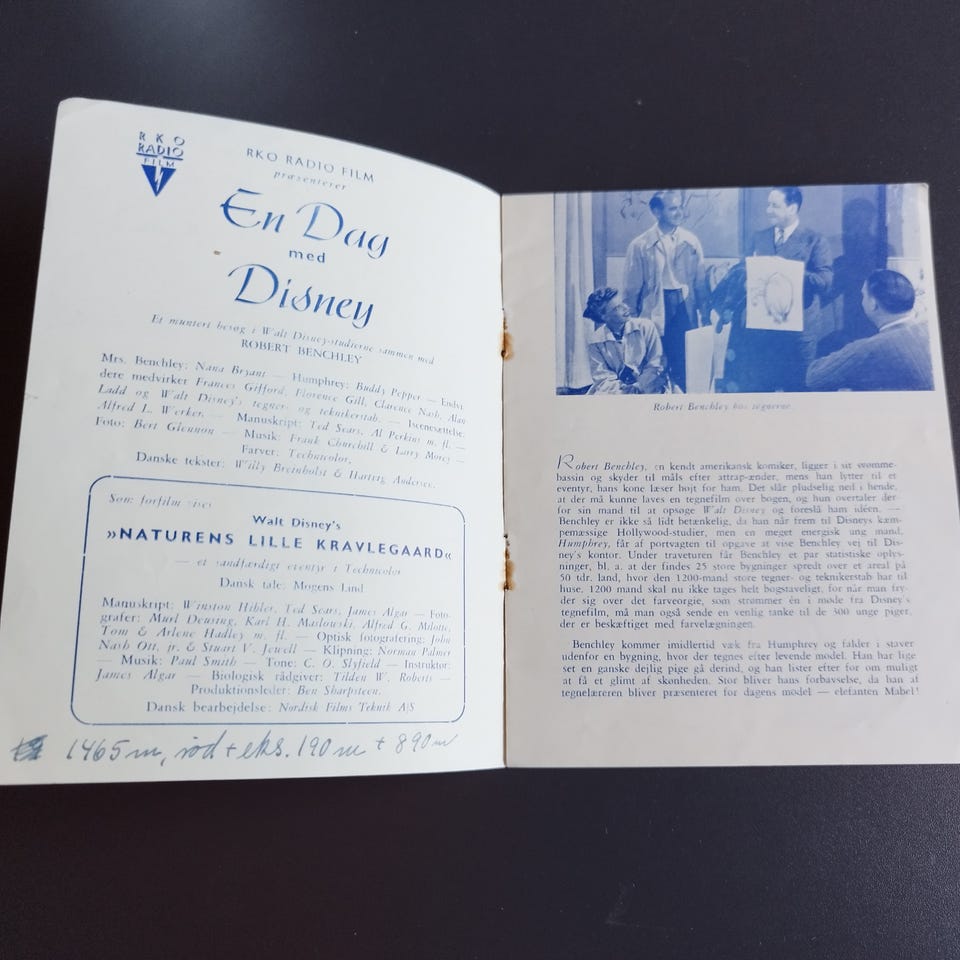 RKO
RADIO
FILM
RKO RADIO FILM
præsenterer
En Dag
med
Disney
Et muntert besøg i Walt Disney-studierne sammen med
ROBERT BENCHLEY
Mrs. Benchley: Nana Bryant — Humphrey: Buddy Pepper — Endvi-
dere medvirker Frances Gifford, Florence Gill, Clarence Nash, Alan
Ladd og Walt Disney's tegner- og teknikerstab. — Iscenesættelse:
Alfred L. Werker. — Manuskript: Ted Sears, Al Perkins m. fl. —
Foto: Bert Glennon — Musik: Frank Churchill & Larry Morey —
Farver: Technicolor.
Danske tekster: Willy Breinholst & Hartvig Andersen.
Som forfilm vises
Walt Disney's
»NATURENS LILLE KRAVLEGAARD«
— et sandfærdigt eventyr i Technicolor
Dansk tale: Mogens Lind
Manuskript: Winston Hibler, Ted Sears, James Algar — Foto-
grafer: Murl Deusing, Karl H. Maslowski, Alfred G. Milotte,
Tom & Arlene Hadley m. fl. — Optisk fotografering: John
Nash Ott, jr. & Stuart V. Jewell — Klipning: Norman Palmer
— Musik: Paul Smith — Tone: C. O. Slyfield — Instruktør:
James Algar — Biologisk rådgiver: Tilden W. Roberts —
Produktionsleder: Ben Sharpsteen.
Dansk bearbejdelse: Nordisk Films Teknik A|S
1465 m, rød + eks. 190 m + 890 m
Robert Benchley hos tegnerne.
Robert Benchley, en kendt amerikansk komiker, ligger i sit svømme-
bassin og skyder til måls efter attrap-ænder, mens han lytter til et
eventyr, hans kone læser højt for ham. Det slår pludselig ned i hende,
at der må kunne laves en tegnefilm over bogen, og hun overtaler der-
for sin mand til at opsøge Walt Disney og foreslå ham idéen. —
Benchley er ikke så lidt betænkelig, da han når frem til Disneys kæm-
pemæssige Hollywood-studier, men en meget energisk ung mand,
Humphrey, får af portvagten til opgave at vise Benchley vej til Dis-
ney's kontor. Under traveturen får Benchley et par statistiske oplys-
ninger, bl. a. at der findes 25 store bygninger spredt over et areal på
50 tdr. land, hvor den 1200-mand store tegner- og teknikerstab har til
huse. 1200 mand skal nu ikke tages helt bogstaveligt, for når man fry-
der sig over det farveorgie, som strømmer én i møde fra Disney's
tegnefilm, må man også sende en venlig tanke til de 300 unge piger,
der er beskæftiget med farvelægningen.
Benchley kommer imidlertid væk fra Humphrey og falder i staver
udenfor en bygning, hvor der tegnes efter levende model. Han har lige
set en ganske dejlig pige gå derind, og han lister efter for om muligt
at få et glimt af skønheden. Stor bliver hans forbavselse, da han af
tegnelæreren bliver præsenteret for dagens model — elefanten Mabel!